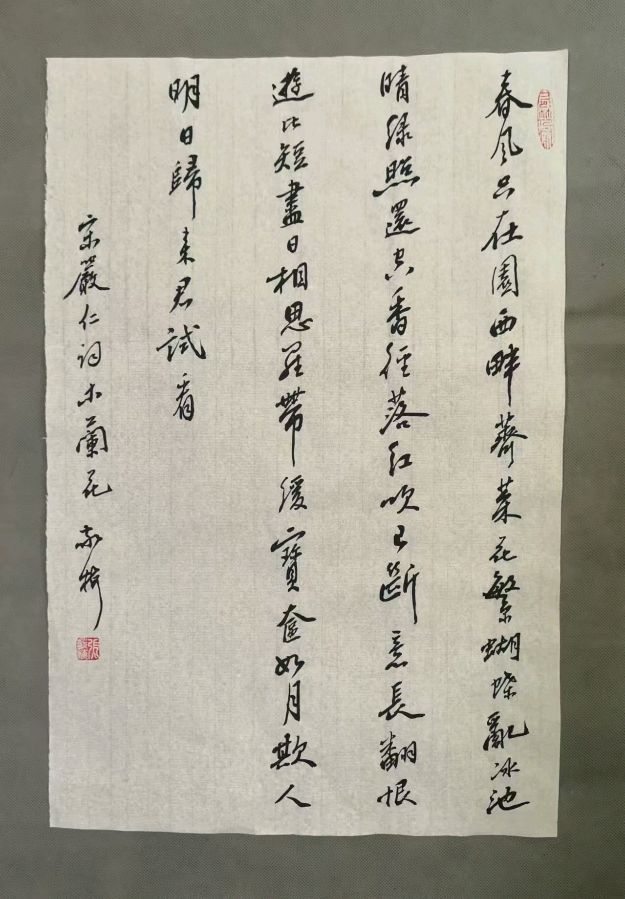 春风只在園西畔薺菜花繁蝴蝶亂冰池
晴绿照還空香徑落红吹已斷意長翻恨
遊丝短盡日相思羅帶缓寶奩如月欺人
明日歸来君試看
宋嚴仁词木蘭花